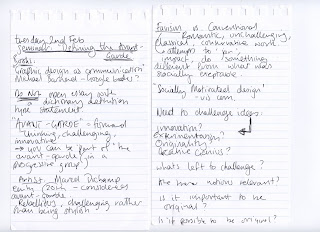 Tuesday 2nd Feb
Seminar: Defining the Avant-
Garde
Books:
'Graphic design as communication'
Michael Barnard - Google books
Do Not open essay with
dictionary definition
type statement
'AVANT-GARDE' = forward
thinking, challenging,
innovative
* you can be part of 'the
avant-garde' (in a
progressive group)
Artist: Marcel Duchamp
early 20th - considered
avant-garde
Rebellious, challenging rather
than being stylish
Fauvism is Conventional
Romantic, unchallenging,
classical, conservative work
attempts to
impact, do something
different from what was
socially exceptable
'Socially Motivated design'
- vis com.
Need to challenge ideas:
innovation?
experimentation?
Originality?
Creative Genius?
whats left to challenge?
Are these notions relevant?
Is it important to be
original?
Is it possible to be original?